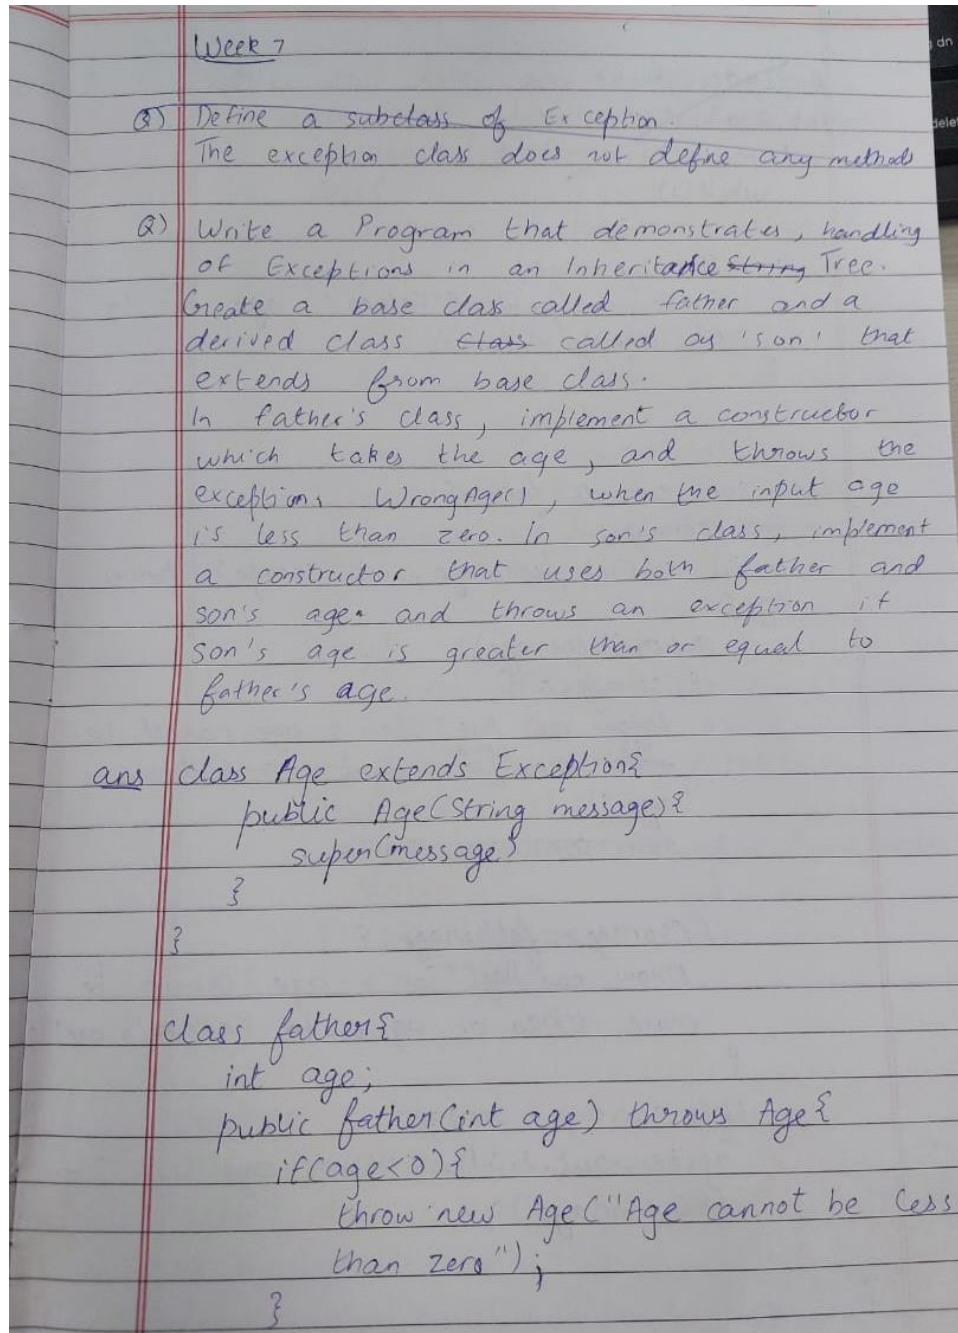 Week 7
Q) Define a subclass of Exception.
The exception class does not define any methods
Q) Write a Program that demonstrates, handling
of Exceptions in an Inheritance String Tree.
Create a base class called father and a
derived class Class called as 'son' that
extends from base class.
In father's class, implement a constructor
which takes the age, and throws the
exception, WrongAge(), when the input age
is less than zero. In son's class, implement
a constructor that uses both father and
son's age. and throws an exception if
son's age is greater than or equal to
father's age.
ans class Age extends Exception{
public Age(String message){
super(message)
}
}
class father{
int age;
public father(int age) throws Age{
if(age<0){
throw new Age("Age cannot be less
than zero");
}
dn
delet